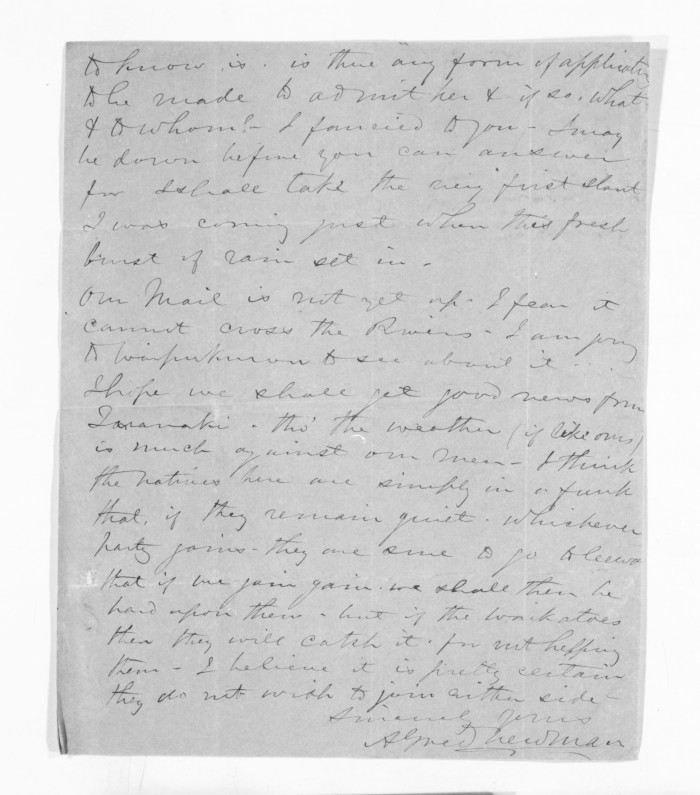 to know is - is there any form of application
to be made to admit her & if so. What
& to whom? - I fancied to you - I may
be down before you can answer
for I shall take the very first slant
I was coming just when this fresh
burst of rain set in -
Our Mail is not yet up - I fear it
cannot cross the Rivers - I am going
to Waipukurau to see about it
I hope we shall get good news from
Taranaki - tho' the weather (if like ours)
is much against our men - I think
the natives here are simply in a funk
that, if they remain quiet - whichever
party joins - they are sure to go to
that if we gain. we shall then be
hard upon them - but if the Waikatoes
then they will catch it for not helping
them - I believe it is pretty certain
they do not wish to join either side -
Sincerely yours
Alfred Newman